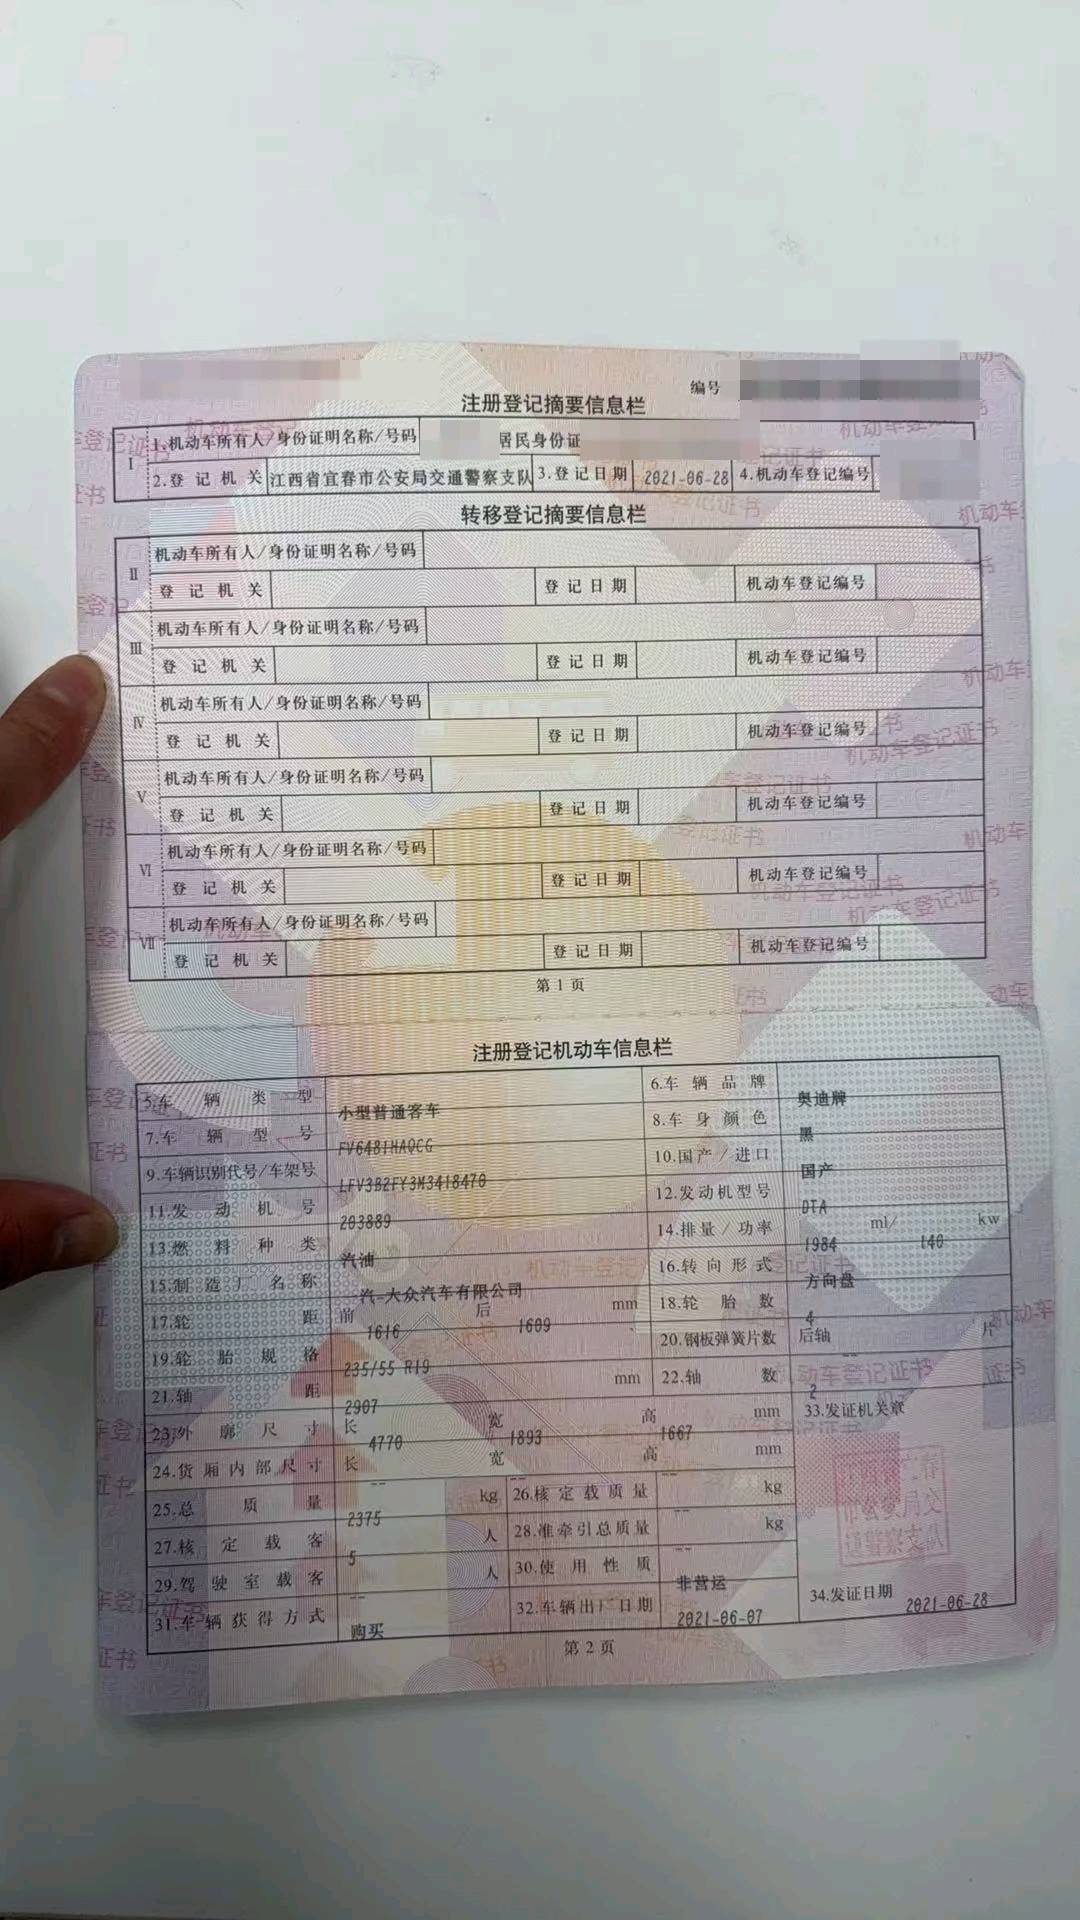 编号
注册登记摘要信息栏
I 1.机动车所有人/身份证明名称/号码 居民身份证
2.登记机关 江西省宜春市公安局交通警察支队 3.登记日期 2021-06-28 4.机动车登记编号
转移登记摘要信息栏
II 机动车所有人/身份证明名称/号码
登记机关 登记日期 机动车登记编号
III 机动车所有人/身份证明名称/号码
登记机关 登记日期 机动车登记编号
IV 机动车所有人/身份证明名称/号码
登记机关 登记日期 机动车登记编号
V 机动车所有人/身份证明名称/号码
登记机关 登记日期 机动车登记编号
VI 机动车所有人/身份证明名称/号码
登记机关 登记日期 机动车登记编号
VII 机动车所有人/身份证明名称/号码
登记机关 登记日期 机动车登记编号
第1页
注册登记机动车信息栏
5.车辆类型 小型普通客车 6.车辆品牌 奥迪牌
7.车辆型号 FV6481HAQCG 8.车身颜色 黑
9.车辆识别代号/车架号 LFV3B2FY3M3418470 10.国产/进口 国产
11.发动机号 203889 12.发动机型号 DTA
13.燃料种类 汽油 14.排量/功率 1984 ml/ 140 kw
15.制造厂名称 一汽-大众汽车有限公司 16.转向形式 方向盘
17.轮距 前 1616 后 1609 mm 18.轮胎数 4
19.轮胎规格 235/55 R19 20.钢板弹簧片数 后轴 -- 片
21.轴距 2907 mm 22.轴数 2
23.外廓尺寸 长 4770 宽 1893 高 1667 mm 33.发证机关章
24.货厢内部尺寸 长 -- 宽 -- 高 -- mm
25.总质量 2375 kg 26.核定载质量 -- kg
27.核定载客 5 人 28.准牵引总质量 -- kg
29.驾驶室载客 -- 人 30.使用性质 非营运
31.车辆获得方式 购买 32.车辆出厂日期 2021-06-07 34.发证日期 2021-06-28
第2页